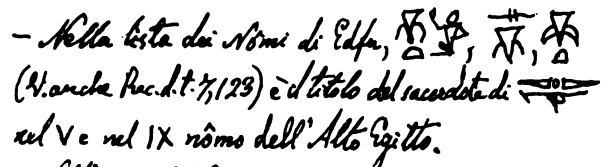 – Nella lista dei Nômi di Edfu, , ,
(V. anche Rec. d. t. 7, 123) è il titolo del sacerdote di
nel V e nel IX nômo dell'Alto Egitto.